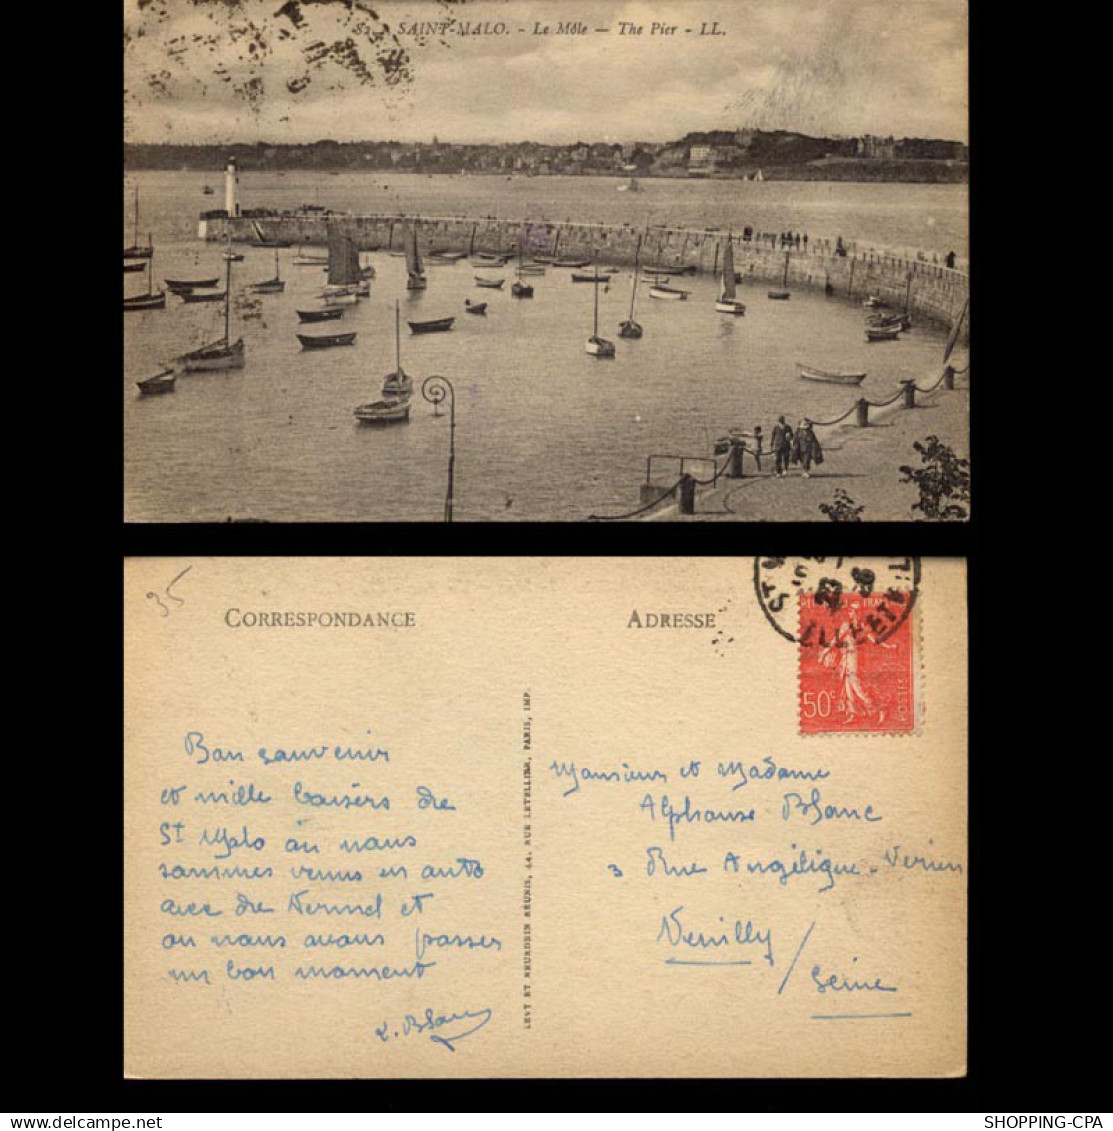 82 - SAINT-MALO. - Le Môle — The Pier - LL.
35
CORRESPONDANCE
ADRESSE
ST M
23
ILLE ET VIL
RÉPUBLIQUE FRANÇAISE
50c
POSTES
Bon souvenir
et mille baisers de
St Malo où nous
sommes venus en auto
avec de Nermel et
où nous avons passer
un bon moment
L. Blanc
LEVY ET NEURDEIN RÉUNIS, 44, RUE LETELLIER, PARIS, IMP.
Monsieur et Madame
Alphonse Blanc
3 Rue Angélique-Verien
Neuilly / Seine
SHOPPING-CPA